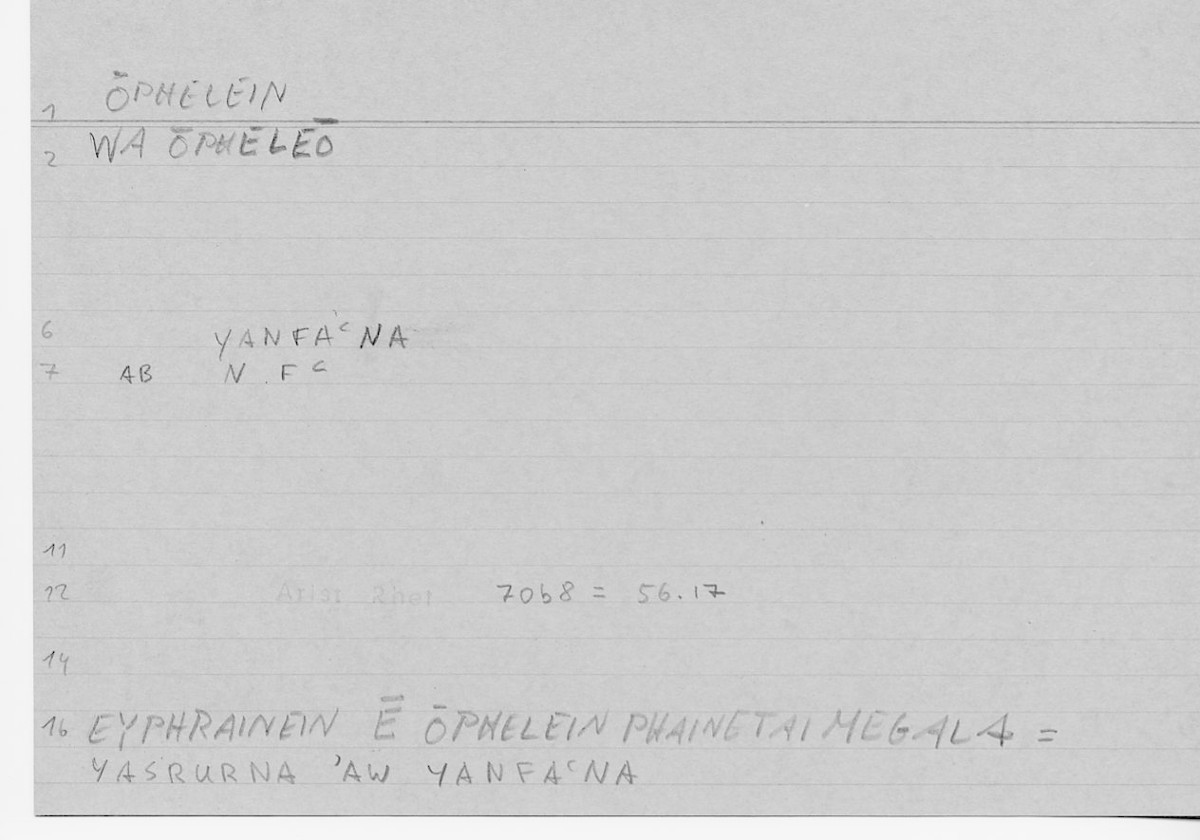 1 ŌPHELEIN
2 WA ŌPHELEŌ
6 YANFAʿNA
7 AB N . F ʿ
11
12 Arist Rhet 70b8 = 56.17
14
16 EYPHRAINEIN Ē ŌPHELEIN PHAINETAI MEGALA =
YASRURNA ʾAW YANFAʿNA